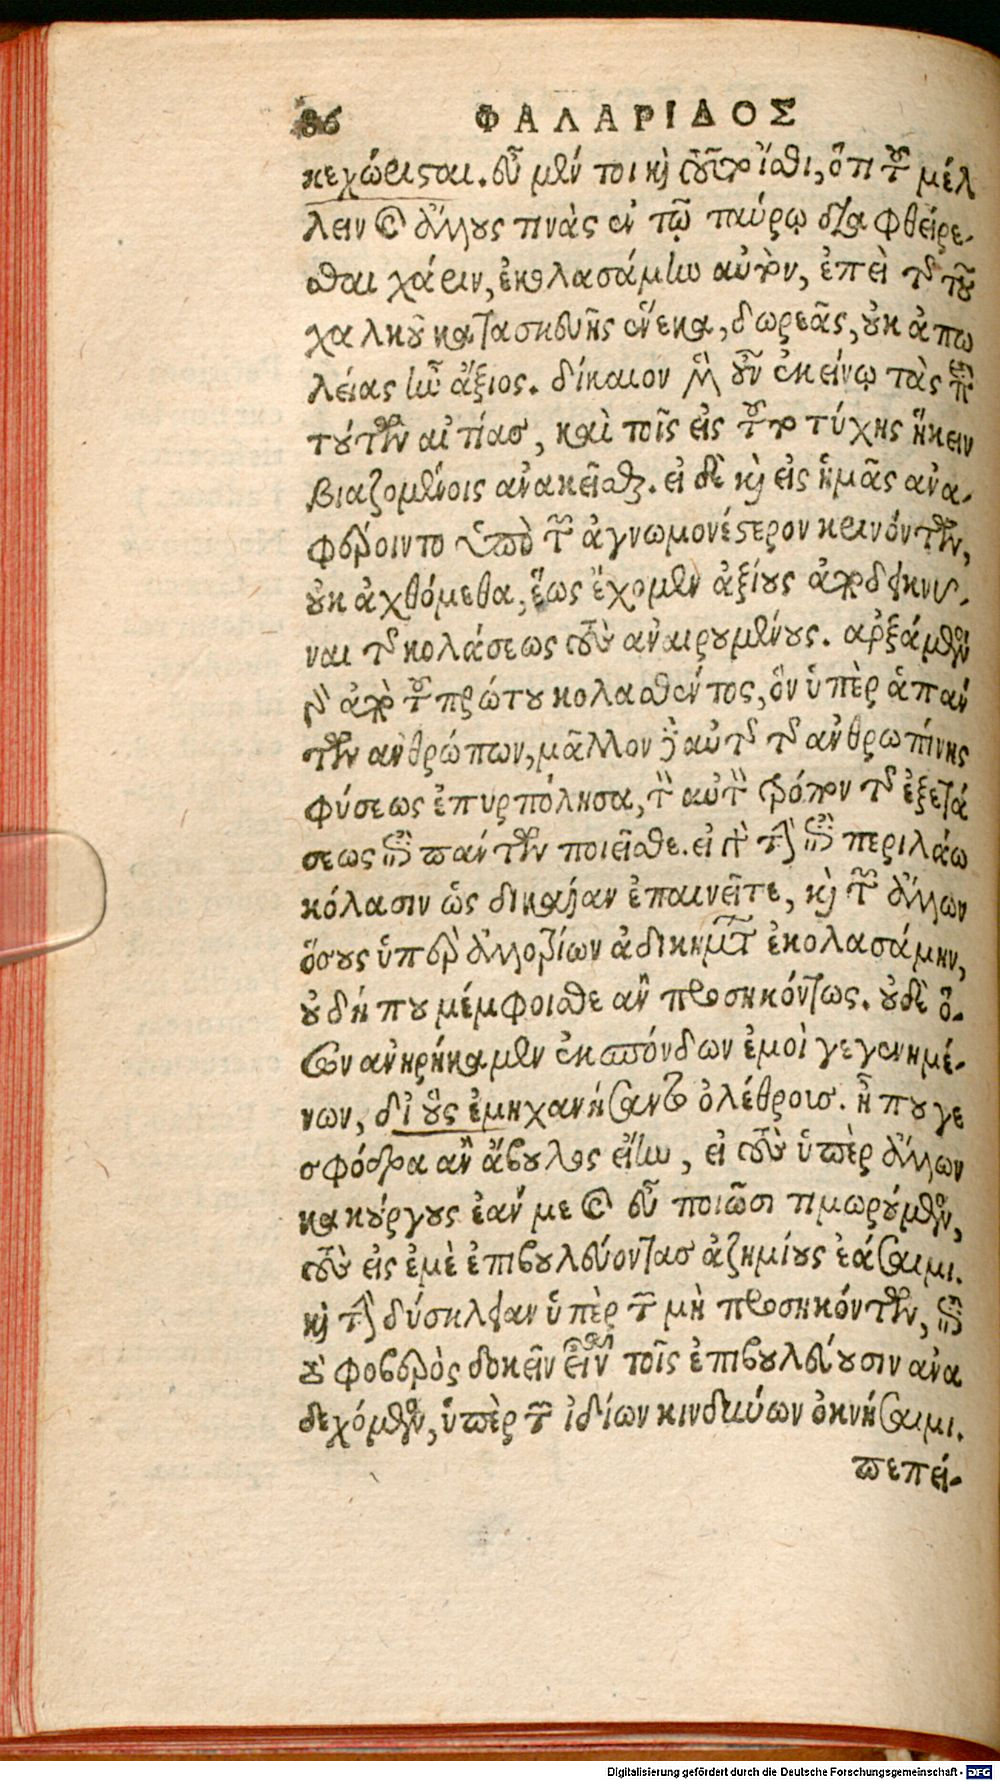 86 ΦΑΛΑΡΙΔΟΣ
κεχώρισται. εὖ μέν τοι καὶ τοῦτο ἴσθι, ὅτι τοῦ μέλ
λειν καὶ ἄλλους τινὰς ἐν τῷ ταύρῳ διαφθείρε-
σθαι χάριν, ἐκολασάμην αὐτὸν, ἐπεὶ τῆς τοῦ
χαλκοῦ κατασκευῆς ἕνεκα, δωρεᾶς, οὐκ ἀπω
λείας ἦν ἄξιος. δίκαιον μὲν οὖν ἐκείνῳ τὰς ἐπὶ
τούτων αἰτίας, καὶ τοῖς εἰς τοῦτο τύχης ἥκειν
βιαζομένοις ἀνακεῖσθαι. εἰ δὲ καὶ εἰς ἡμᾶς ἀνα-
φέροιντο ὑπὸ τῶν ἀγνωμονέστερον κρινόντων,
οὐκ ἀχθόμεθα, ἕως ἔχομεν ἀξίους ἀποδεικνύ-
ναι τῆς κολάσεως τοὺς ἀναιρουμένους. ἀρξάμενοι
δὲ ἀπὸ τοῦ πρώτου κολασθέντος, ὃν ὑπὲρ ἁπάν
των ἀνθρώπων, μᾶλλον δὲ αὐτῆς τῆς ἀνθρωπίνης
φύσεως ἐπυρπόλησα, τὸν αὐτὸν τρόπον τῆς ἐξετά
σεως ἐπὶ πάντων ποιεῖσθε. εἰ γὰρ τὴν ἐπὶ περιλάω
κόλασιν ὡς δικαίαν ἐπαινεῖτε, καὶ τῶν ἄλλων
ὅσους ὑπὲρ ἀλλοτρίων ἀδικημάτων ἐκολασάμην,
οὐδήπου μέμφοισθε ἂν προσηκόντως. οὐδὲ ὅ-
σων ἀνῃρήκαμεν ἐκσπόνδων ἐμοὶ γεγενημέ-
νων, δι' οὓς ἐμηχανήσαντο ὀλέθροις. ἦ που γε
σφόδρα ἂν ἄβουλος εἴην, εἰ τοὺς ὑπὲρ ἄλλων
κακούργους ἐάν με καὶ εὖ ποιῶσι τιμωρούμενος,
τοὺς εἰς ἐμὲ ἐπιβουλεύοντας ἀζημίους ἐάσαιμι.
καὶ τὴν δύσκλειαν ὑπὲρ τῶν μὴ προσηκόντων, ἐπὶ
οὐ φοβερὸς δοκεῖν εἶναι τοῖς ἐπιβουλεύουσιν ἀνα
δεχόμενος, ὑπὲρ τῶν ἰδίων κινδύνων ὀκνήσαιμι.
πεπεί-
Digitalisierung gefördert durch die Deutsche Forschungsgemeinschaft - DFG